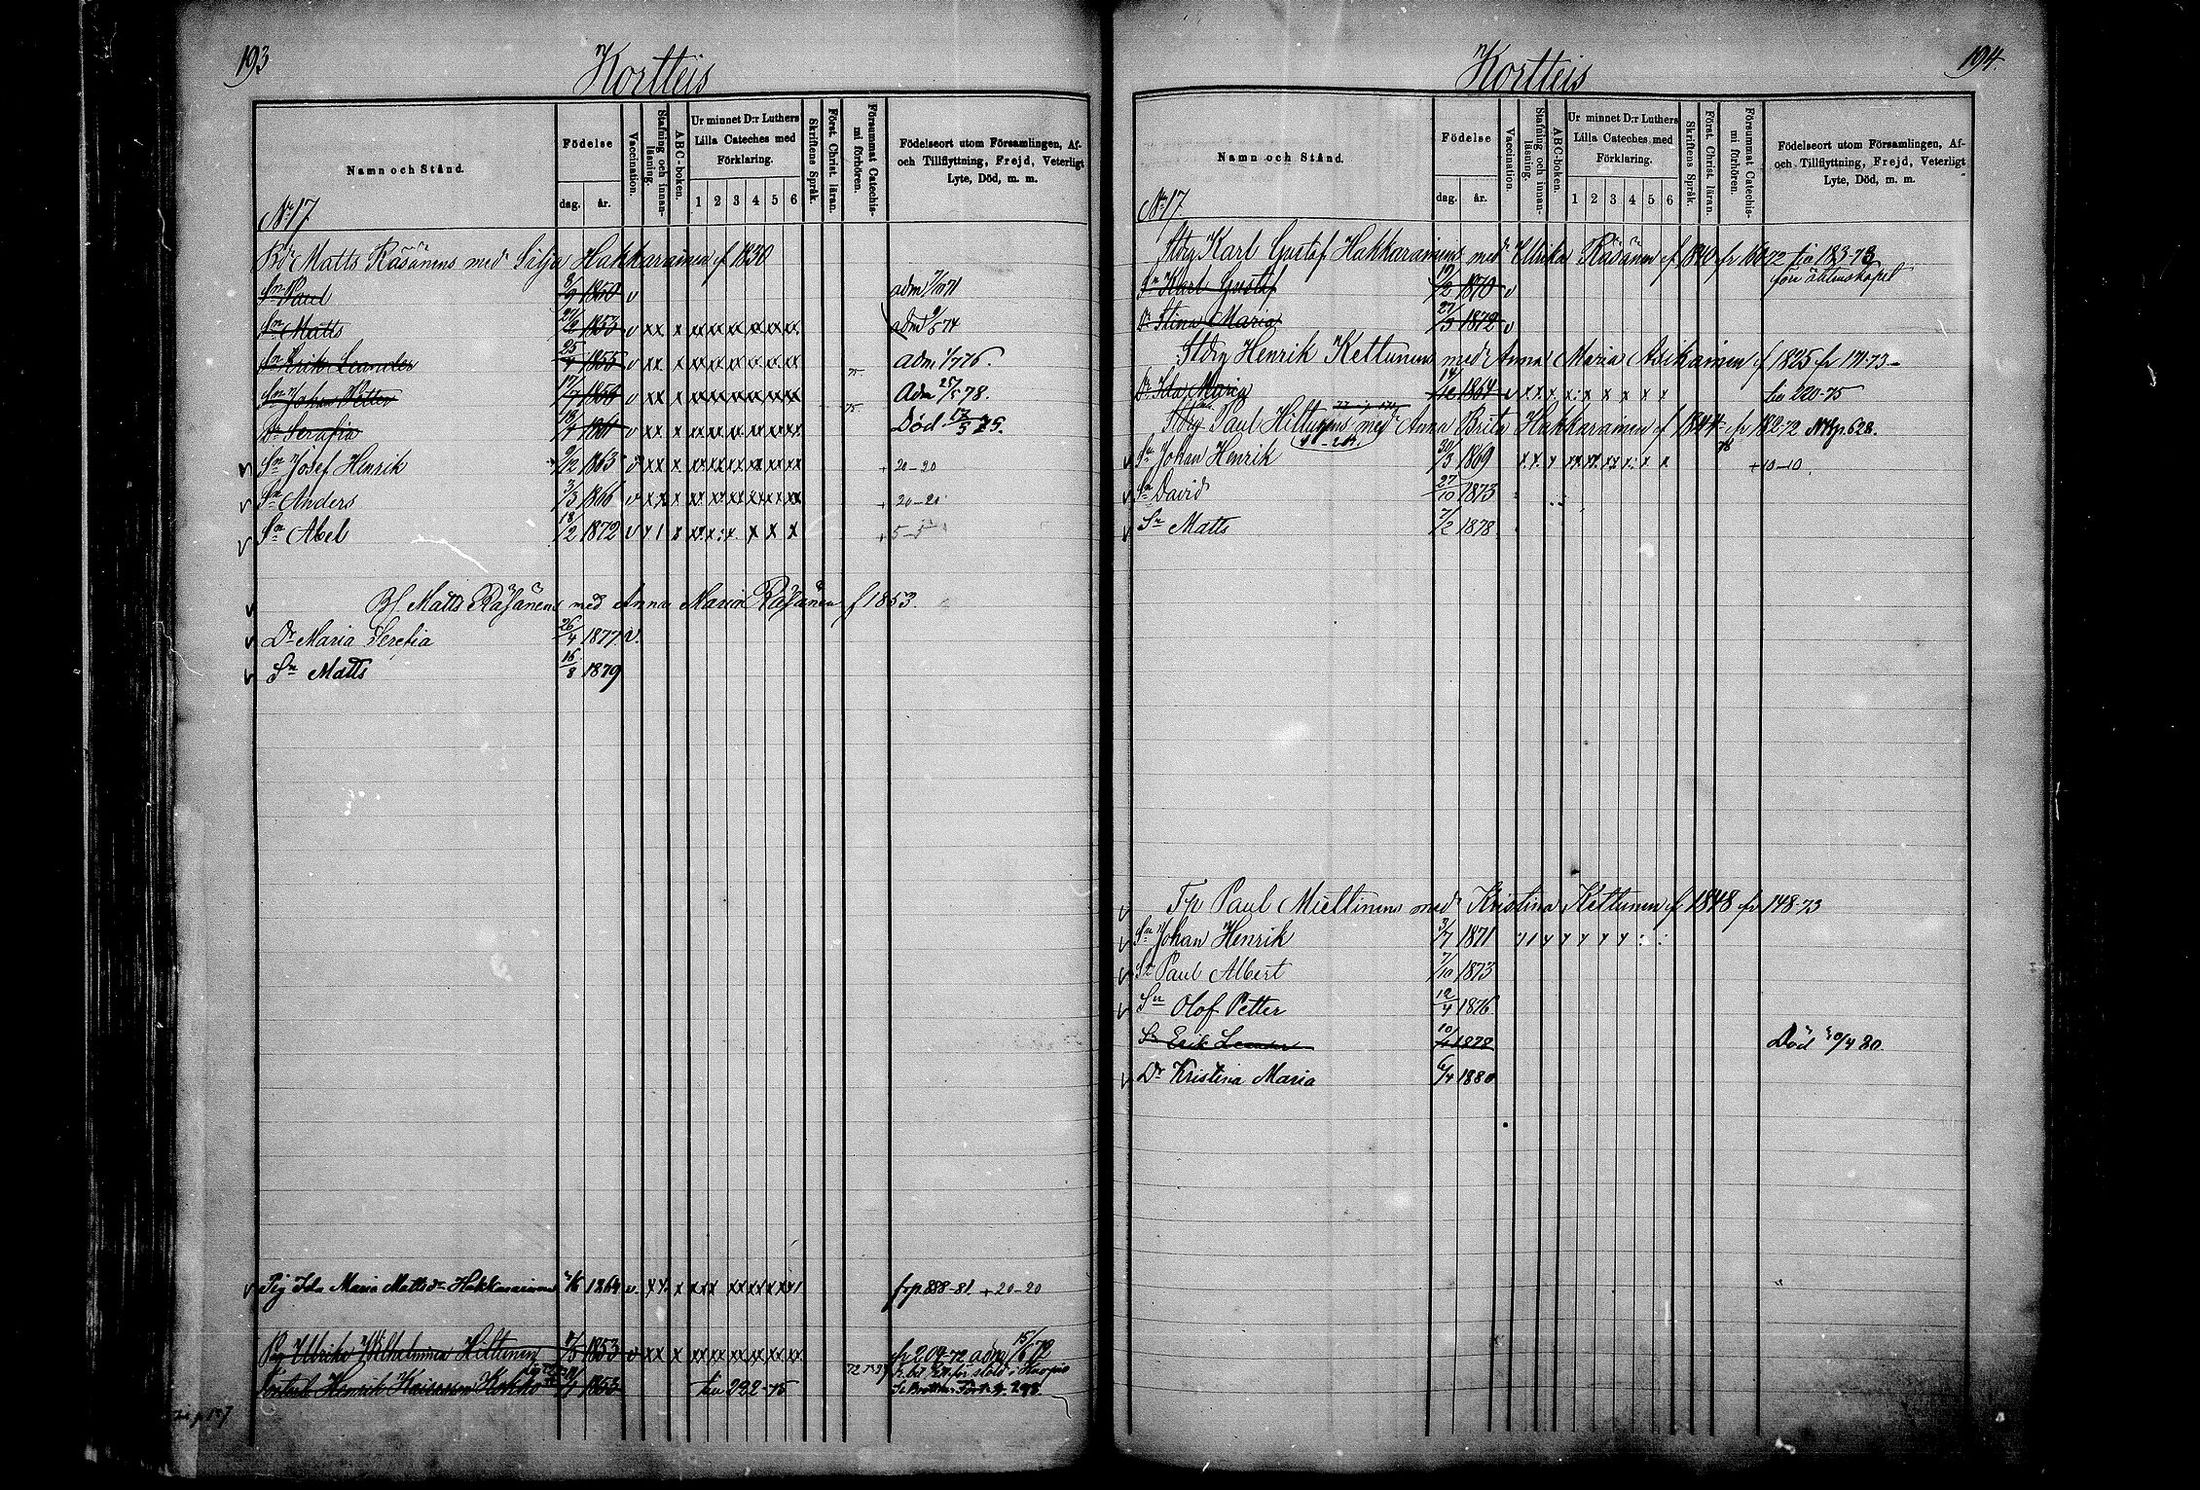 193
Kortteis
Namn och Stånd.
Födelse
dag. år.
Vaccination.
Stafning och innan-läsning.
ABC-boken.
Ur minnet D:r Luthers
Lilla Cateches med
Förklaring.
1 2 3 4 5 6
Skriftens Språk.
Först. Christ. läran.
Försummat Catechis-mi förhören.
Födelseort utom Församlingen, Af-
och Tillflyttning, Frejd, Veterligt
Lyte, Död, m. m.
No 17
Bd Matts Räsänens med Silja Hakkarainen f 1830
Sn Paul 8/9 1850 v adm 7/10 71
Sn Matts 1853 v xx x xx xx xx xx xx xx adm 9/5 74
Sn Erik Leander 25/4 1855 v xx x xx xx xx xx xx xx adm 1/7 76.
Sn Johan Petter 17/7 v xx x xx xx xx xx xx xx 75 Adm 25/5 78.
Dr Serafia 1861 v xx x xx xx xx xx xx xx 75 Död 75.
v Sn Josef Henrik 9/12 1863 v xx x xx xx xx xx xx xx + 20-20
v Sn Anders 3/3 1866 v xx x xx xx xx xx xx xx + 20-20
v Sn Abel 18/2 1872 v x x x x x x + 5-5
v Matts Räsänen med Anna Maria Räsänen f 1853.
v Dr Maria Serefia 26/4 1877 v.
v Sn Matts 16/8 1879
v Pig Ida Maria Mattsdr Hakkarainen 1864 v. xx x frp. 888-81 + 20-20
Pig Ulrika Wilhelmina Hiltunen 1853 v xx x xx xx xx xx xx xx fr 209-72 adm 15/6 72
Henrik 1853 till 222-75
194.
Kortteis
Namn och Stånd.
Födelse
dag. år.
Vaccination.
Stafning och innan-läsning.
ABC-boken.
Ur minnet D:r Luthers
Lilla Cateches med
Förklaring.
1 2 3 4 5 6
Skriftens Språk.
Först. Christ. läran.
Försummat Catechis-mi förhören.
Födelseort utom Församlingen, Af-
och Tillflyttning, Frejd, Veterligt
Lyte, Död, m. m.
No 17
Karl Gustaf Hakkarainens med Ulrika Räsänen f 1840 fr 160-72 183-73
Sn Karl Gustaf 17/2 1870 v
Dr Stina Maria 27/3 1872 v
Henrik Kettunens med Anna Maria Asikainen f 1825 fr 171-73
Dr Ida Maria 1864 v x x x x x x x x x 220-75
Paul Hiltunens med Anna Brita Hakkarainen f 1844 fr 182-72 p. 628.
v Sn Johan Henrik 30/3 1869 x x x xx xx xx x x 78 + 10-10.
v Sn David 27/10 1873
v Sn Matts 7/2 1878
v Paul Miettinens med Kristina Kettunen f 1848 fr 148-73
v Sn Johan Henrik 3/7 1871
v Sn Paul Albert 7/10 1873
v Sn Olof Petter 12/4 1876
Sn Erik Leander 1878 Död 80.
v Dr Kristina Maria 6/4 1880